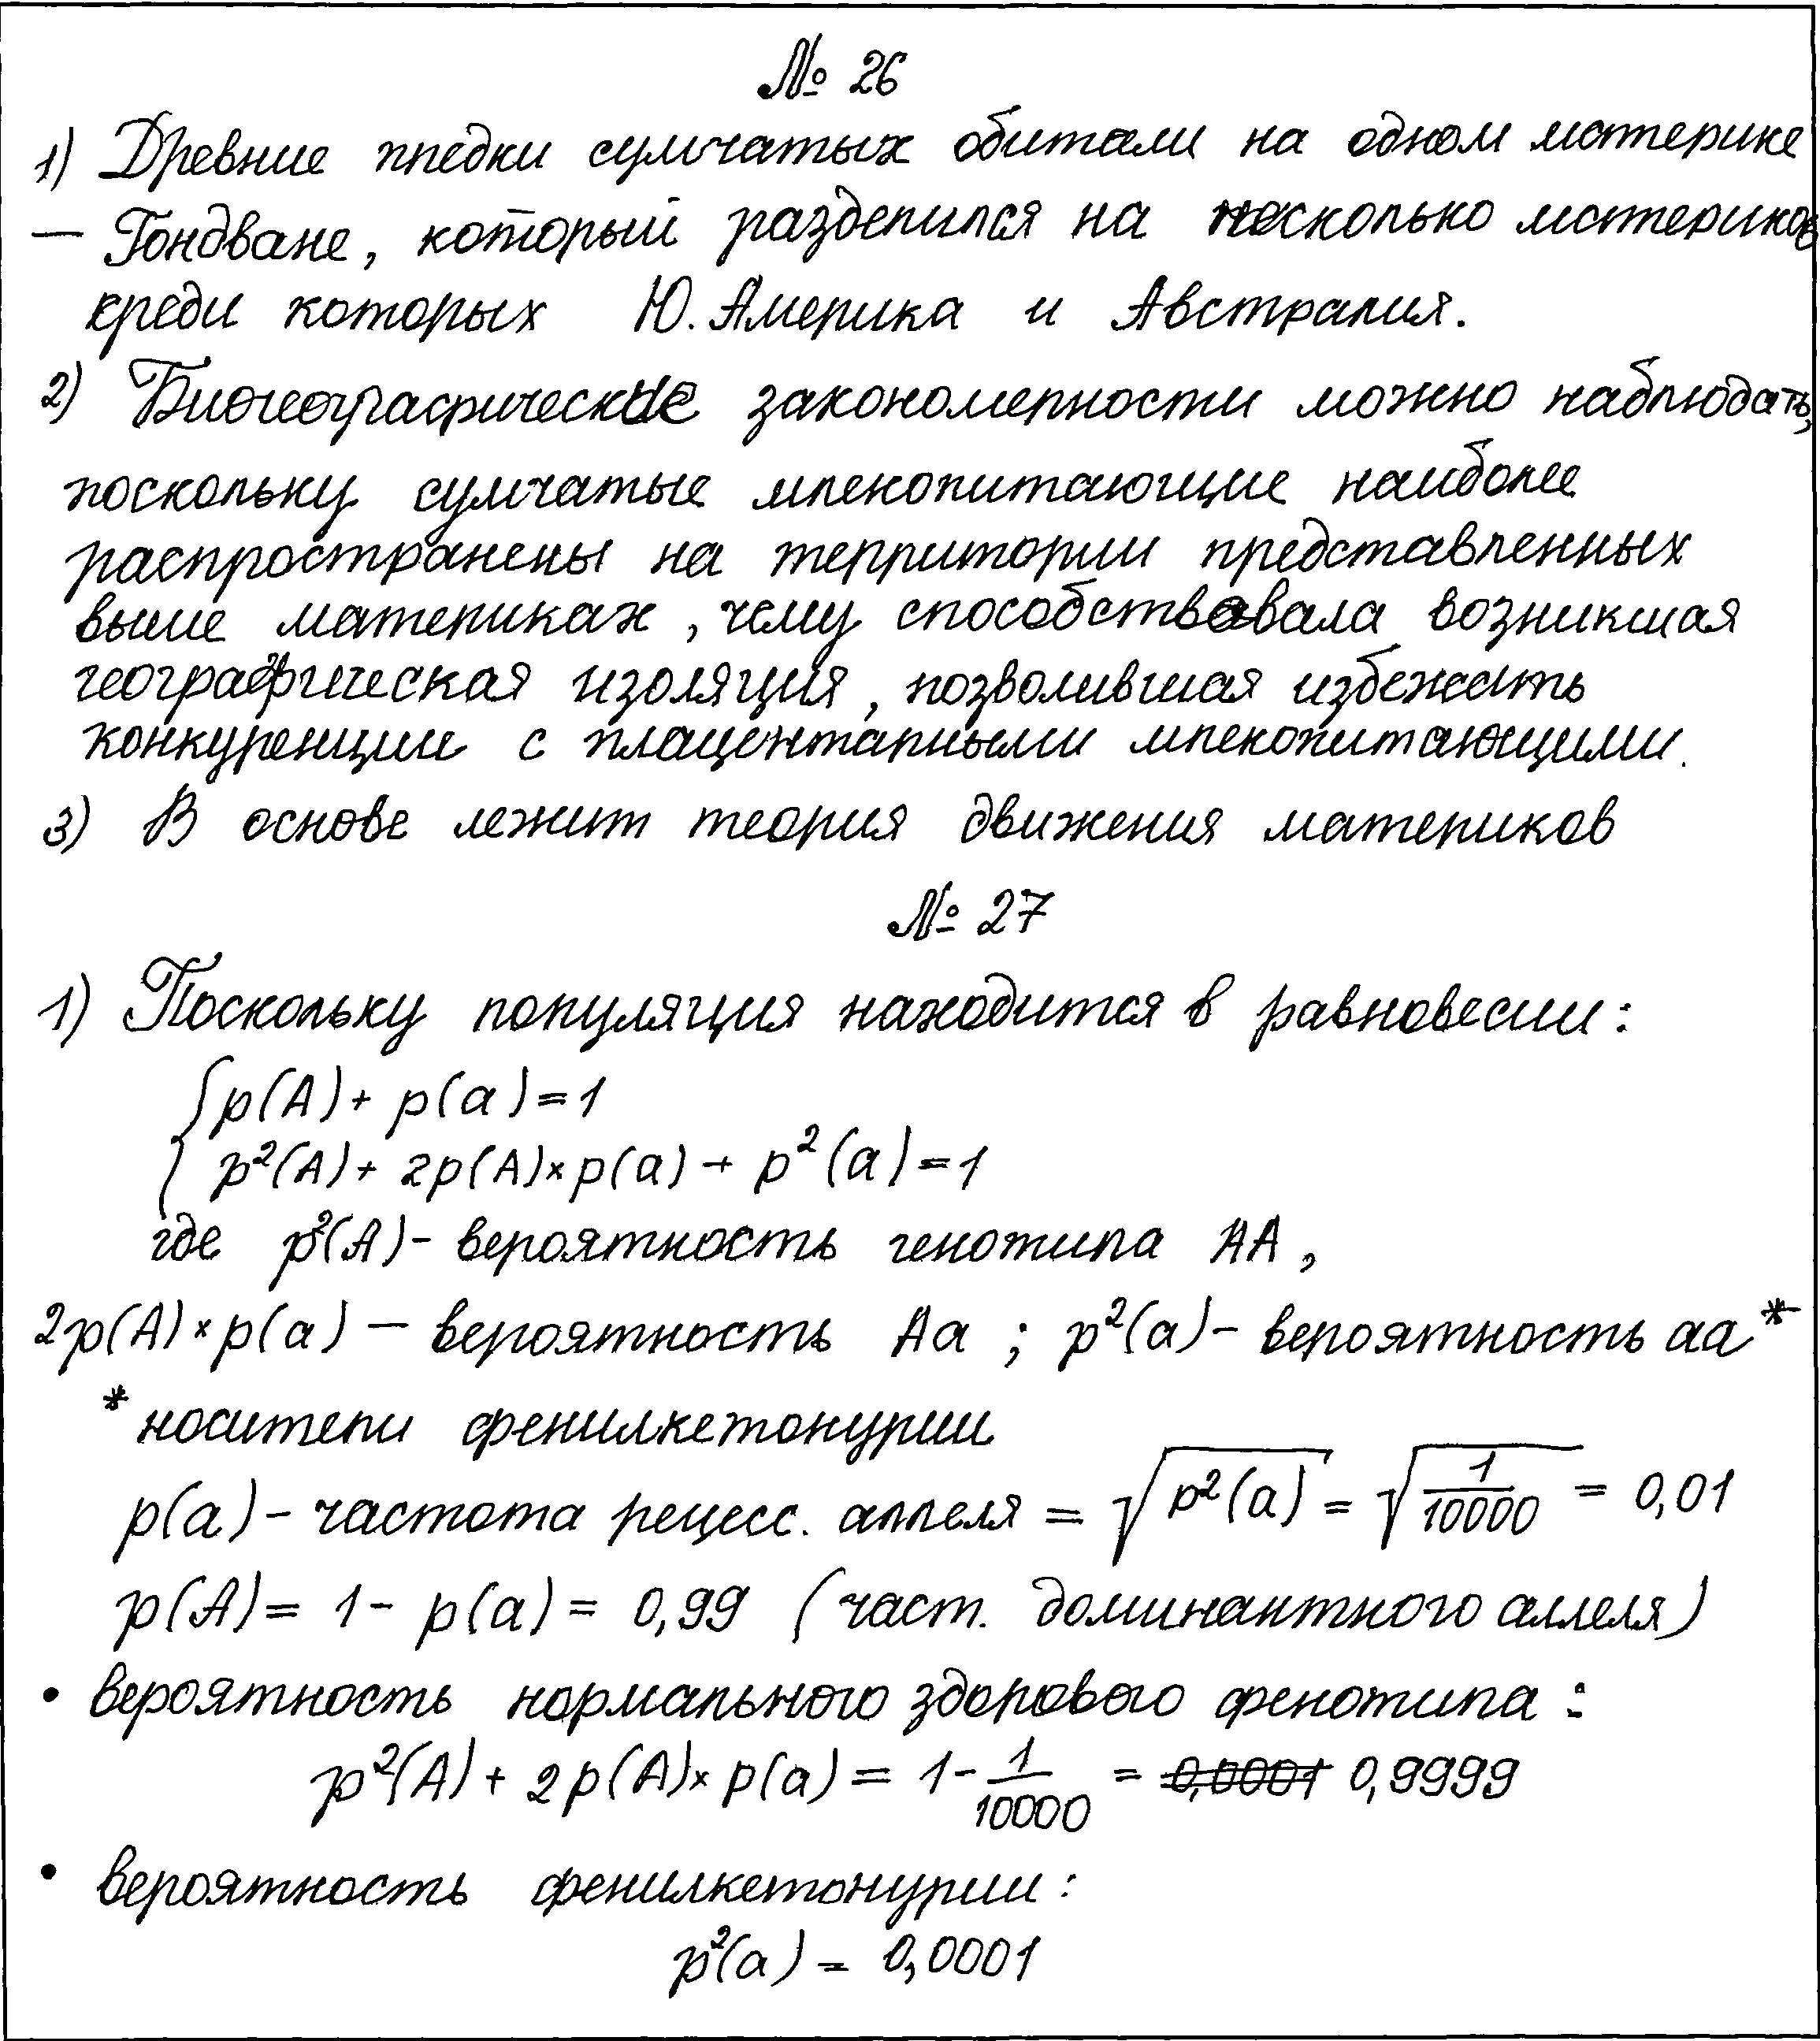 № 26
1) Древние предки сумчатых обитали на одном материке
— Гондване, который разделился на несколько материков
среди которых Ю. Америка и Австралия.
2) Биогеографические закономерности можно наблюдать,
поскольку сумчатые млекопитающие наиболее
распространены на территории представленных
выше материках, чему способствовала возникшая
географическая изоляция, позволившая избежать
конкуренции с плацентарными млекопитающими.
3) В основе лежит теория движения материков
№ 27
1) Поскольку популяция находится в равновесии:
{ p(A) + p(a) = 1
p²(A) + 2p(A) × p(a) + p²(a) = 1
где p²(A) - вероятность генотипа AA,
2p(A) × p(a) — вероятность Aa ; p²(a) - вероятность aa *
* носители фенилкетонурии
p(a) - частота рецесс. аллеля = √p²(a) = √(1/10000) = 0,01
p(A) = 1 - p(a) = 0,99 (част. доминантного аллеля)
• вероятность нормального здорового фенотипа :
p²(A) + 2p(A) × p(a) = 1 - 1/10000 = 0,0001 0,9999
• вероятность фенилкетонурии :
p²(a) = 0,0001